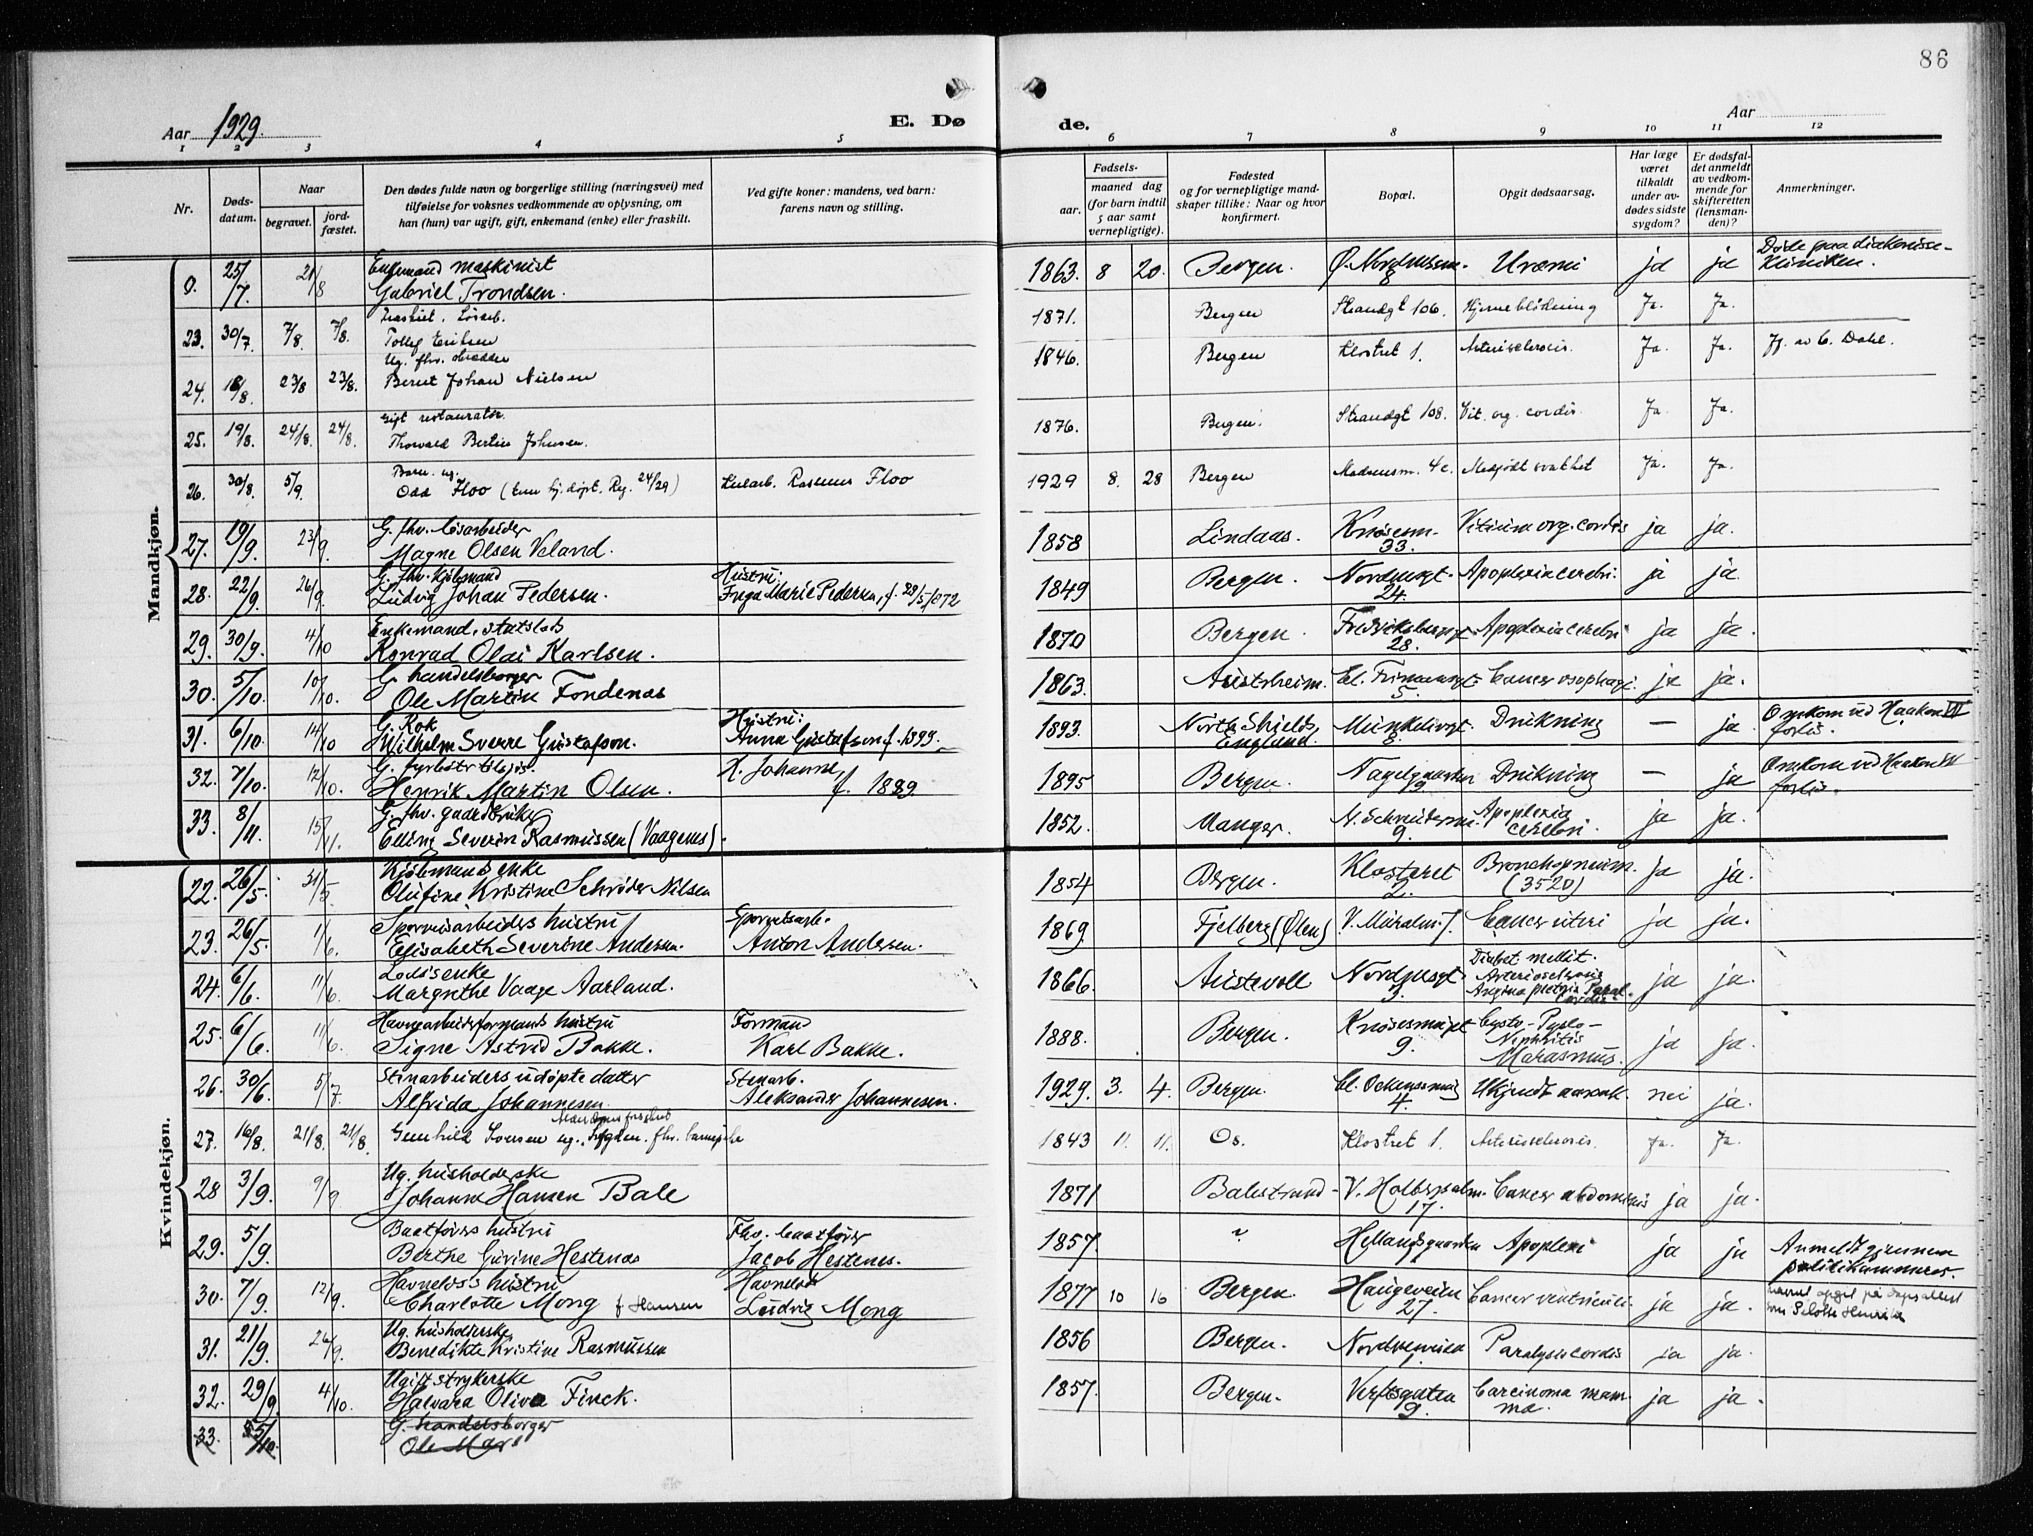 86
Aar 1929.
E. Dø
de.
Aar
1 2 3 4 5 6 7 8 9 10 11 12
Nr.
Døds-
datum.
Naar
begravet.
jord-
fæstet.
Den dødes fulde navn og borgerlige stilling (næringsvei) med
tilføielse for voksnes vedkommende av oplysning, om
han (hun) var ugift, gift, enkemand (enke) eller fraskilt.
Ved gifte koner: mandens, ved barn:
farens navn og stilling.
Fødsels-
aar.
maaned dag
(for barn indtil
5 aar samt
vernepligtige).
Fødested
og for vernepligtige mand-
skaper tillike: Naar og hvor
konfirmert.
Bopæl.
Opgit dødsaarsag.
Har læge
været
tilkaldt
under av-
dødes sidste
sygdom?
Er dødsfal-
det anmeldt
av vedkom-
mende for
skifteretten
(lensman-
den)?
Anmerkninger.
Mandkjøn.
Enkemand maskinist
0. 25/7. 21/8 Gabriel Trondsen. 1863. 8 20. Bergen. Uræmi ja ja Døde paa diakonisse-
kliniken.
23. 30/7 7/8. 7/8. Tollef Eriksen 1871. Bergen Strandgt 106. Hjerneblödning Ja. Ja.
Ug.
24. 18/8. 23/8 23/8. Bernt Johan Nielsen 1846. Bergen Klostret 1. Arteriosclerosis. Ja. Ja.
Gift restauratör.
25. 19/8. 24/8. 24/8. Thorvald Bertin Johnsen. 1876. Bergen. Strandgt 108. Vit. org. cordis. Ja. Ja.
Barn. ug.
26. 30/8. 5/9. Odd Floo (hj. döpt. Reg. 24/29) Rasmus Floo 1929 8. 28 Bergen Madsensm. 4c. Medfödt svakhet Ja. Ja.
G. fhv. løsarbeider
27. 19/9. 23/9. Magne Olsen Veland. 1858 Lindaas. Knøsesm. 33. Vitium org. cordis ja ja.
G. fhv. kjøbmand
28. 22/9. 26/9. Ludvig Johan Pedersen. Hustru:
Inga Marie Pedersen, f. 28/5 1872 1849 Bergen. Nordnesgt. 24. Apoplexia cerebri. ja ja.
Enkemand, statslods
29. 30/9. 4/10 Konrad Olai Karlsen. 1870 Bergen. 28. Apoplexia cerebri ja ja.
G. handelsborger
30. 5/10. 10/10. Ole Martin Fondenas 1863. Austrheim. 5. Cancer oesophagi. ja ja.
G. Kok
31. 6/10. 14/10 Wilhelm Sverre Gustafson. Hustru:
Anna Gustafson f. 1899. 1893. North Shields,
England. Munkelivgt. 8. Drukning — ja Omkom ved Haakon VII
forlis.
G. fyrbøter
32. 7/10. 12/10. Henrik Martin Olsen. H. Johanne
f. 1889. 1895 Bergen. 9. Drukning — ja Omkom ved Haakon VII
forlis.
G. fhv. gaardbruker
33. 8/11. 15/11. Elling Severin Rasmussen (Vaagenes). 1852. Manger. 9. Apoplexia
cerebri. ja ja.
Kvindekjøn.
Kjøbmands enke
22. 26/5. 31/5. Olufine Kristine Schrøder Nilsen 1854 Bergen. Klosteret 2. Bronchopneum.
(3520) ja ja.
Sporveisarbeiders hustru
23. 26/5 1/6. Elisabeth Severine Andersen. Sporveisarb.
Anton Andersen. 1869. Fjelberg (Ølen) Cancer uteri ja ja.
Lods enke
24. 6/6. 11/6. Margrethe Vaage Aarland. 1866. Austevoll Nordnesgt. 3. Diabet mellit.
Arteriosclerosis
Angina pectoris ja ja.
Havnearbeidsformands hustru
25. 6/6. 11/6. Signe Astrid Bakke. Formand
Karl Bakke. 1888. Bergen. Knøsesmuget 9. Cysto-Pyelo-
Nephritis
Marasmus. ja ja.
Stenarbeiders udøpte datter
26. 30/6. 5/7. Alfrida Johannesen. Stenarb.
Aleksander Johannesen. 1929. 3. 4. Bergen. 4. Ukjendt aarsak. nei ja.
27. 16/8. 21/8. 21/8. Gunhild ug. 1843 11. 11. Os. Klostret 1. Arteriosclerosis. Ja. Ja.
Ug. husholderske
28 3/9. 9/9 Johanne Hansen Bale 1871 Balestrand 17. Cancer abdominis ja ja.
Baatførers hustru
29. 5/9. Berthe Gurine Hestenes Fhv. baatfører
Jacob Hestenes. 1857. Apoplexi ja ja Anmeldt gjennem
politikammeret.
Havnelods hustru
30. 7/9. 12/9. Charlotte Mong f. Hansen Havnelods
Ludvig Mong 1877 10 16 Bergen. Haugeveien 27. Cancer ventriculi. ja ja.
Ug. husholderske
31. 21/9. 26/9. Benedikte Kristine Rasmussen 1856 Bergen. Nordnesveien 1. Paralysis cordis ja ja.
Ugift strykerske
32. 29/9. 4/10. Halvara Oliva Finck. 1857. Bergen. Verftsgaten 9. Carcinoma mam-
ma. ja ja.
G. handelsborger
33. 5/10. Ole Mar